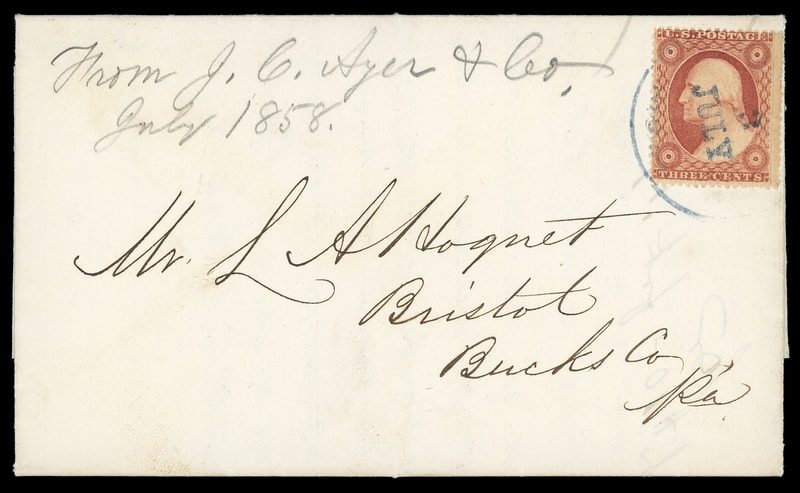 From J. C. Ayer & Co.
July 1858.
U.S. POSTAGE
JULY
THREE CENTS
Mr. L A Hoguet
Bristol
Bucks Co
Pa.